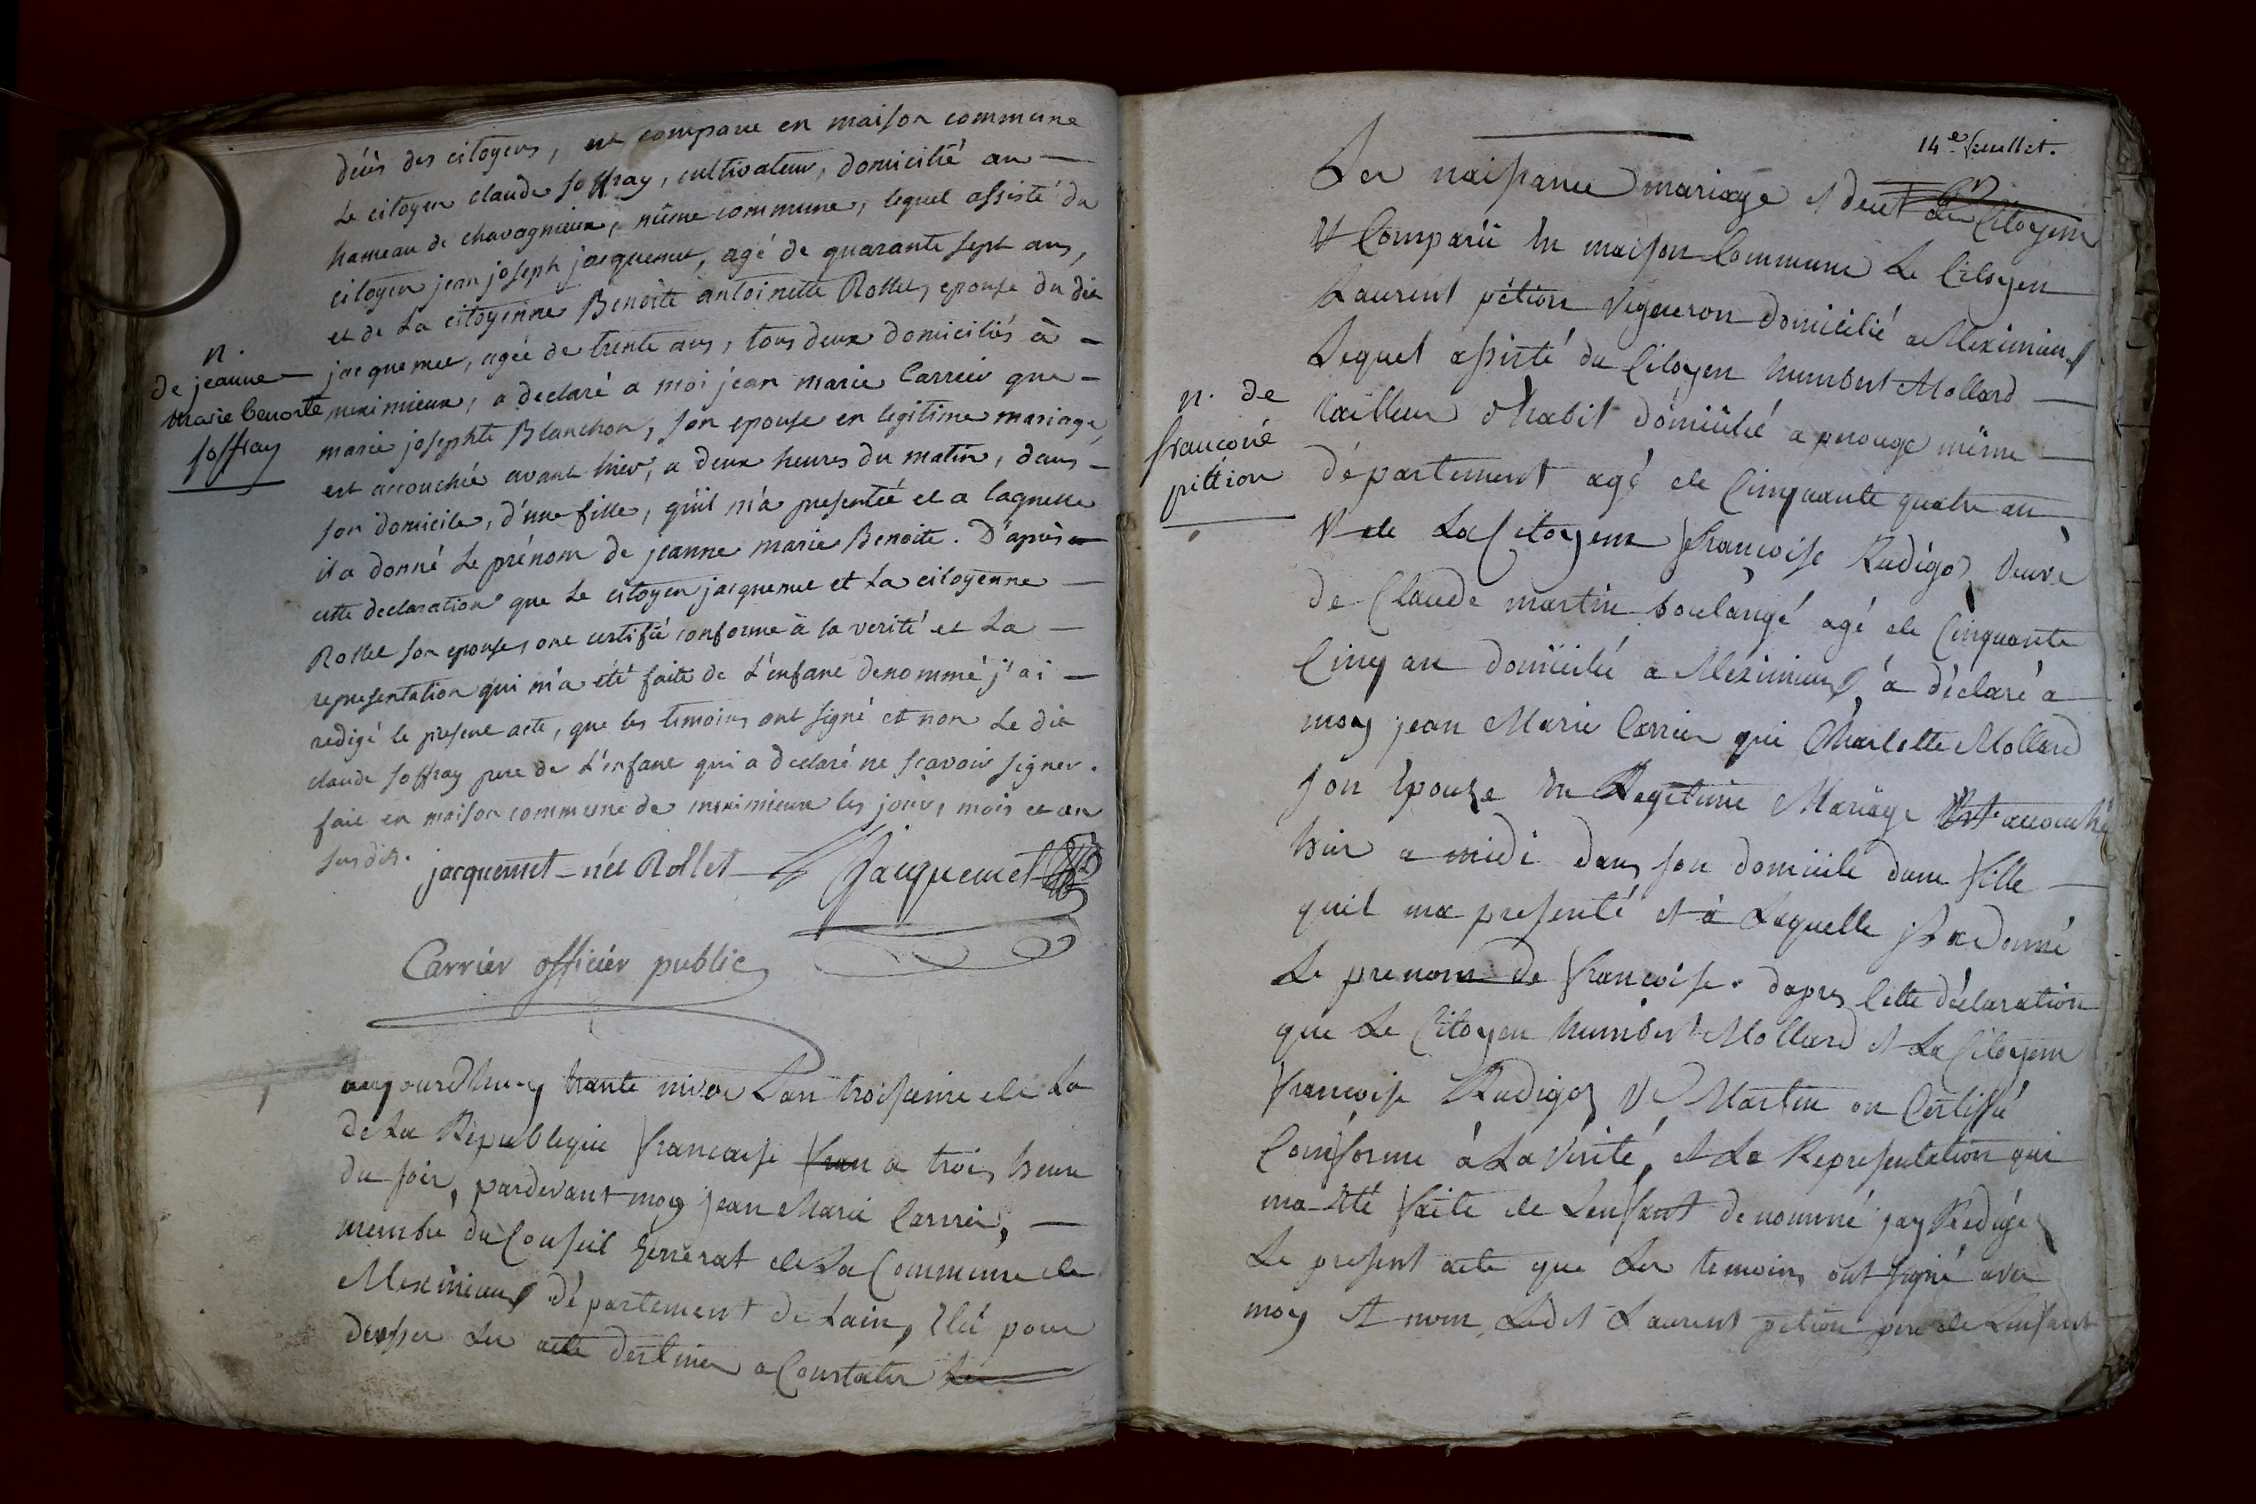 décès des citoyens, est comparu en maison commune
Le citoyen claude soffray, cultivateur, domicilié au
hameau de chavagnieux, même commune, lequel assisté du
citoyen jean joseph jacquemet, agé de quarante sept ans,
et de La citoyenne Benoite antoinette Rollet, epouse du dit
jacquemet, agée de trente ans, tous deux domiciliés à
meximieux, a declaré a moi jean marie Carrier que
marie josephte Blanchon, son epouse en legitime mariage,
est accouchée avant hier, a deux heures du matin, dans
son domicile, d'une fille, qu'il m'a presentée et a laquelle
il a donné Le prénom de jeanne marie Benoite. D'après
cette declaration que Le citoyen jacquemet et La citoyenne
Rollet son epouse, ont certifié conforme à la verité et La
representation qui m'a été faite de L'enfant denommé j'ai
redigé le present acte, que les temoins ont signé et non Le dit
claude soffray pere de L'enfant qui a declaré ne scavoir signer.
fait en maison commune de meximieux les jour, mois et an
susdits.
n.
de jeanne
marie benoite
soffray
jacquemet née Rollet
Jacquemet
Carrier officier public
aujourdhuy trante nivose Lan troisieme de La
de La Republique francaise fran a trois heure
du soir, pardevant moy jean Marie Carrier,
membre du Conseil general de La Commune de
Meximieux département de Lain, Elu pour
dresser Les acte destiner a Constater Les
14e feuillet.
Les naissance mariage et deces des Citoyens
Et Comparu En maison Commune Le Citoyen
Laurent pétion Vigneron domicilié a Meximieux
Lequel assisté du Citoyen humbert Mollard
tailleur d'habit domicilié a perouge même
département agé de Cinquante quatre an
Et de La Citoyenne françoise Rudigoz veuve
de Claude martin boulangé agé de Cinquante
Cinq an domicilié a Meximieux, a déclaré a
moy jean Marie Carrier que Charlotte Mollard
son Epouse En Legitime Mariage Est accouché
hier a midi dans son domicile dune fille
quil ma presenté et à Laquelle il a donné
Le prenom de francoise. dapres Cette déclaration
que Le Citoyen humbert Mollard et La Citoyenne
francoise Rudigoz Ve Martin on Certifié
Conforme à La vérité, et La Representation qui
ma Eté faite de Lenfant denommé jay Redigé
Le present acte que Les temoins ont signé avec
moy Et nom Ledit Laurent petion pere de Lenfant
n. de
francoise
pittion